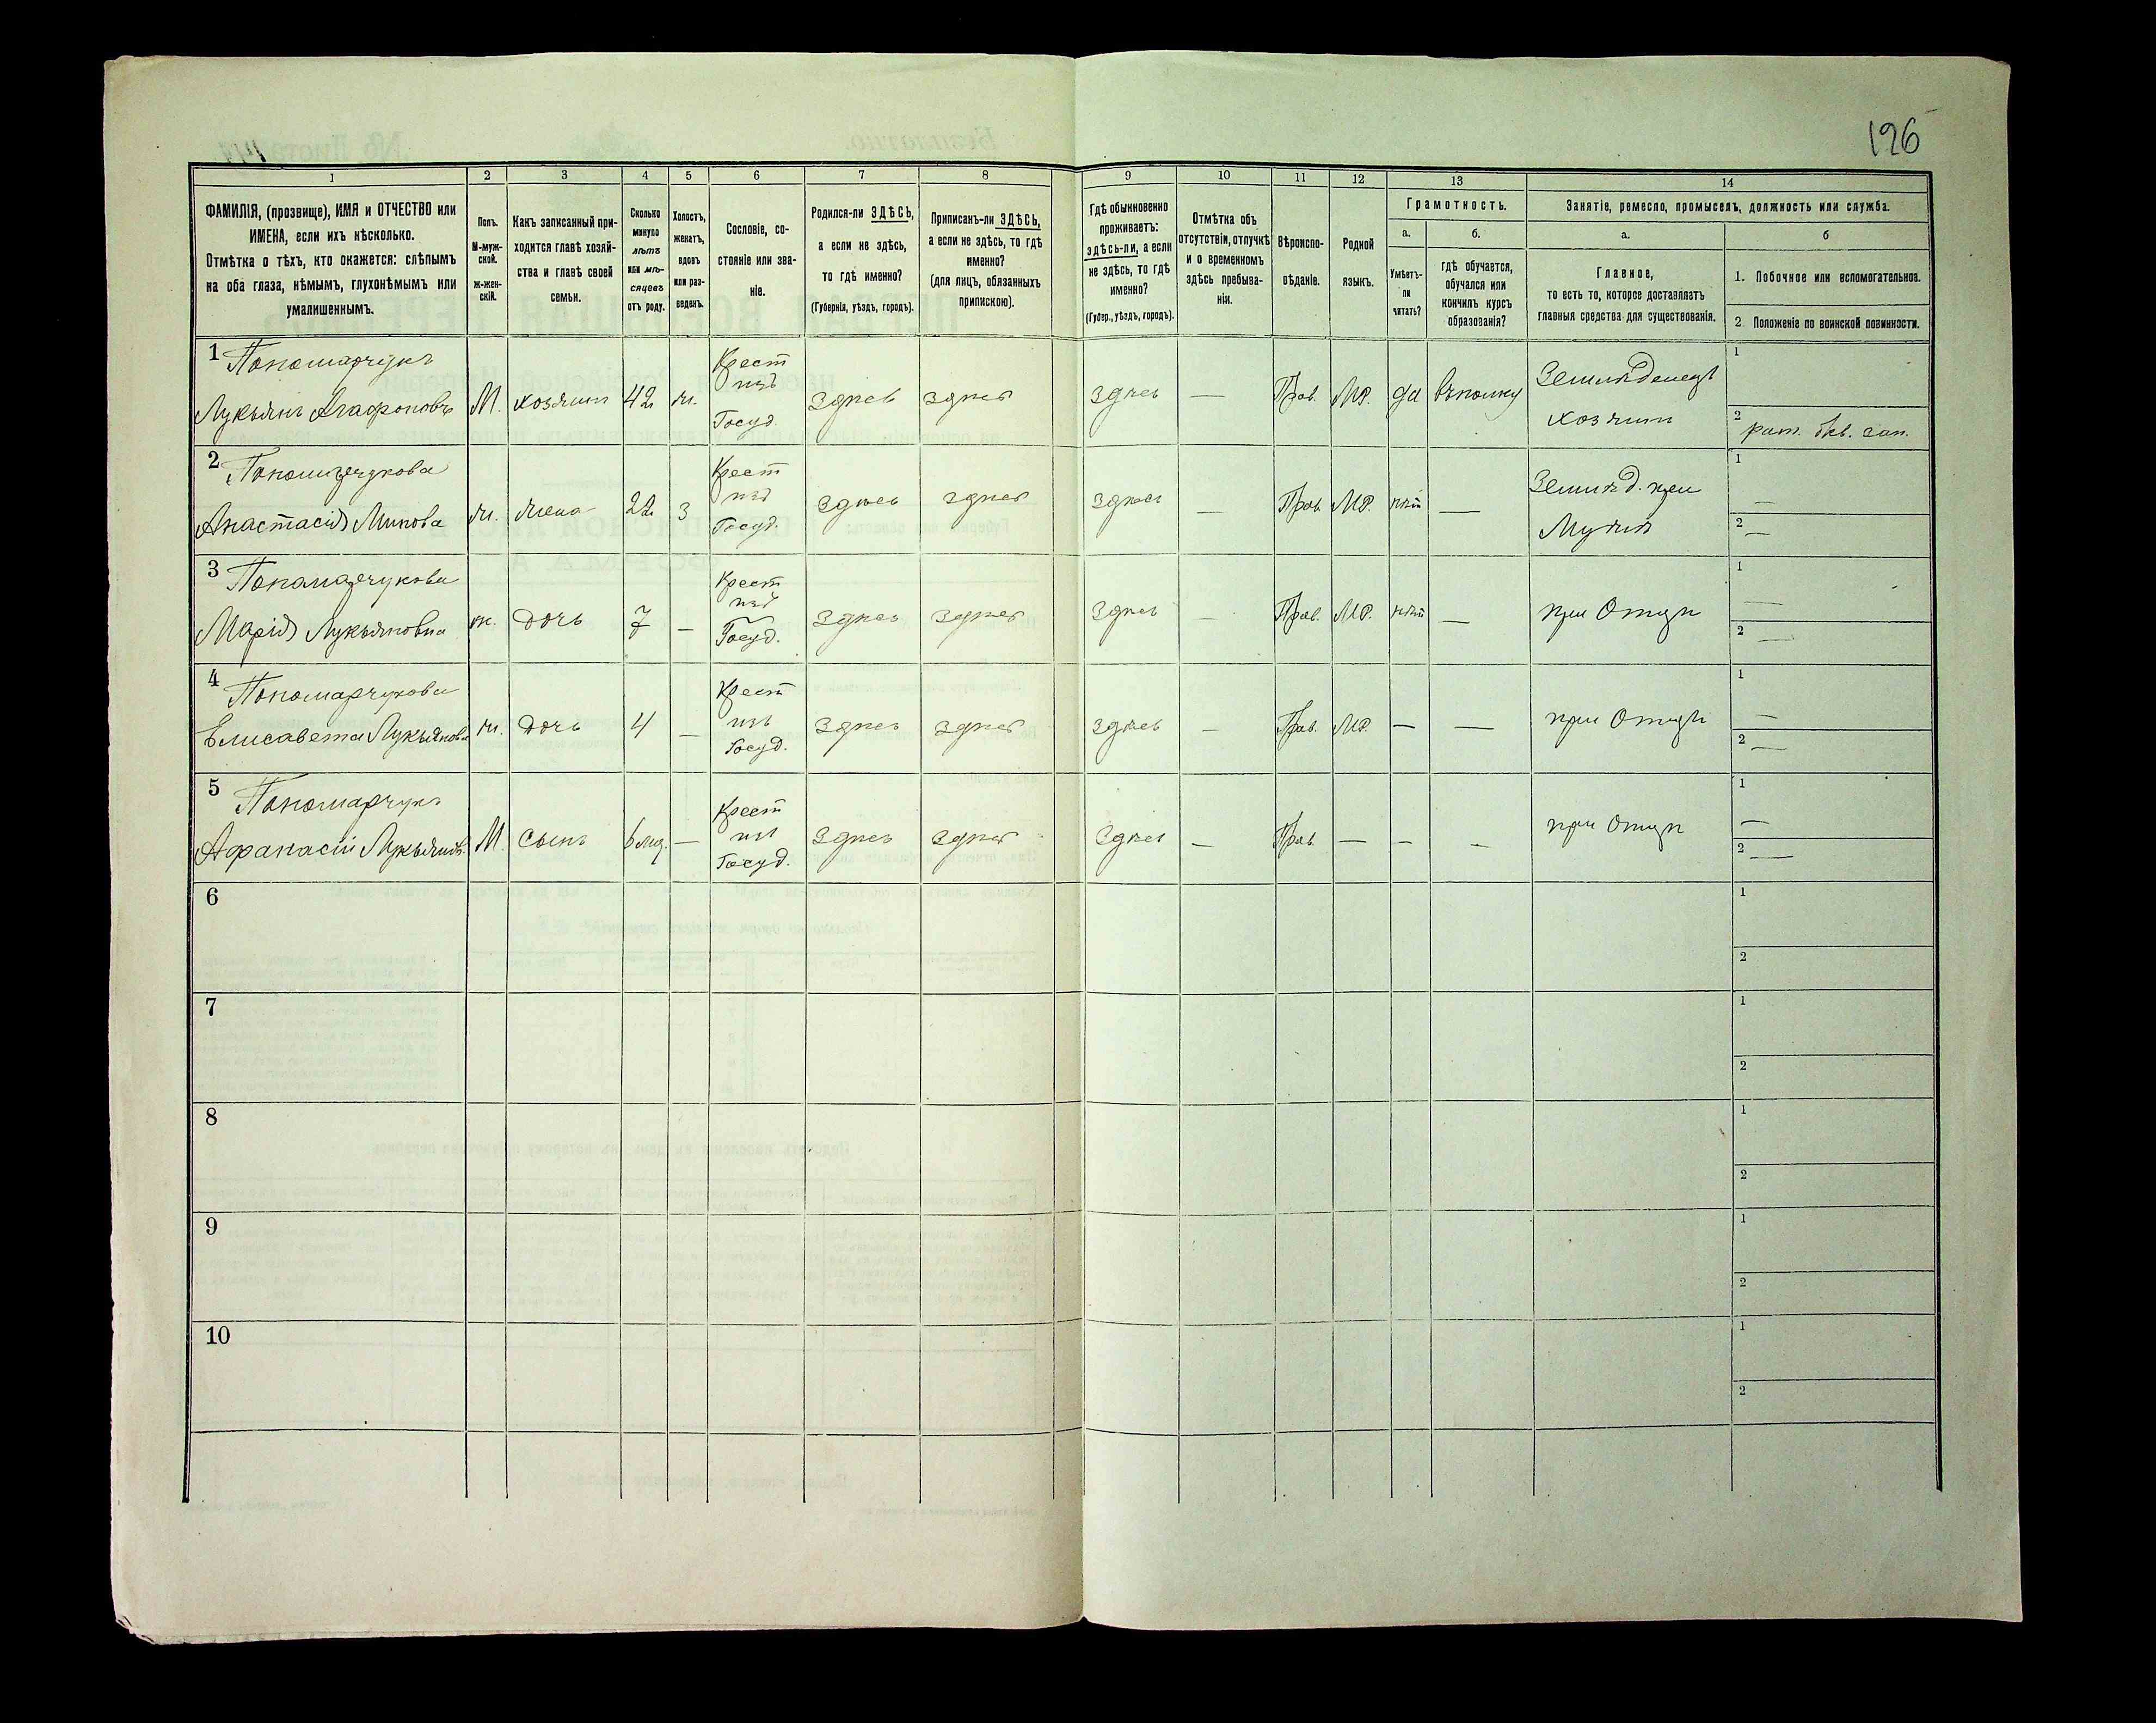 126
1
2
3
4
5
6
7
8
9
10
11
12
13
14
ФАМИЛІЯ, (прозвище), ИМЯ и ОТЧЕСТВО или
ИМЕНА, если ихъ нѣсколько.
Отмѣтка о тѣхъ, кто окажется: слѣпымъ
на оба глаза, нѣмымъ, глухонѣмымъ или
умалишеннымъ.
Полъ.
М-муж-
ской.
ж-жен-
скій.
Какъ записанный при-
ходится главѣ хозяй-
ства и главѣ своей
семьи.
Сколько
минуло
лѣтъ
или мѣ-
сяцевъ
отъ роду.
Холостъ,
женатъ,
вдовъ
или раз-
веденъ.
Сословіе, со-
стояніе или зва-
ніе.
Родился-ли ЗДѢСЬ,
а если не здѣсь,
то гдѣ именно?
(Губернія, уѣздъ, городъ).
Приписанъ-ли ЗДѢСЬ,
а если не здѣсь, то гдѣ
именно?
(для лицъ, обязанныхъ
припискою).
Гдѣ обыкновенно
проживаетъ:
здѣсь-ли, а если
не здѣсь, то гдѣ
именно?
(Губер., уѣздъ, городъ).
Отмѣтка объ
отсутствіи, отлучкѣ
и о временномъ
здѣсь пребыва-
ніи.
Вѣроиспо-
вѣданіе.
Родной
языкъ.
Грамотность.
а.
б.
Умѣетъ-
ли
читать?
гдѣ обучается,
обучался или
кончилъ курсъ
образованія?
Занятіе, ремесло, промыселъ, должность или служба.
а.
б
Главное,
то есть то, которое доставляетъ
главныя средства для существованія.
1. Побочное или вспомогательное.
2 Положеніе по воинской повинности.
1 Пономарчукъ
Лукьянъ Агафоновъ М. хозяинъ 42 ж. Крест изъ Госуд. Здѣсь здѣсь здѣсь — Прав. МР. да въ полку Земледѣлецъ хозяинъ
1
2 рат. зап.
2 Пономарчукова
Анастасія Минова ж. жена 22 З Крест изъ Госуд. Здѣсь здѣсь здѣсь — Прав. МР. нѣт — Земляд. при Мужѣ
1 —
2 —
3 Пономарчукова
Марія Лукьяновна ж. Дочь 7 — Крест изъ Госуд. Здѣсь здѣсь здѣсь — Прав. МР. нѣт — при Отцѣ
1 —
2 —
4 Пономарчукова
Елисавета Лукьянова ж. Дочь 4 — Крест изъ Госуд. Здѣсь здѣсь здѣсь — Прав. МР. — — при Отцѣ
1 —
2 —
5 Пономарчукъ
Афанасій Лукьянов. М. Сынъ 6 мц. — Крест изъ Госуд. Здѣсь здѣсь здѣсь — Прав. — — — при Отцѣ
1 —
2 —
6
1
2
7
1
2
8
1
2
9
1
2
10
1
2